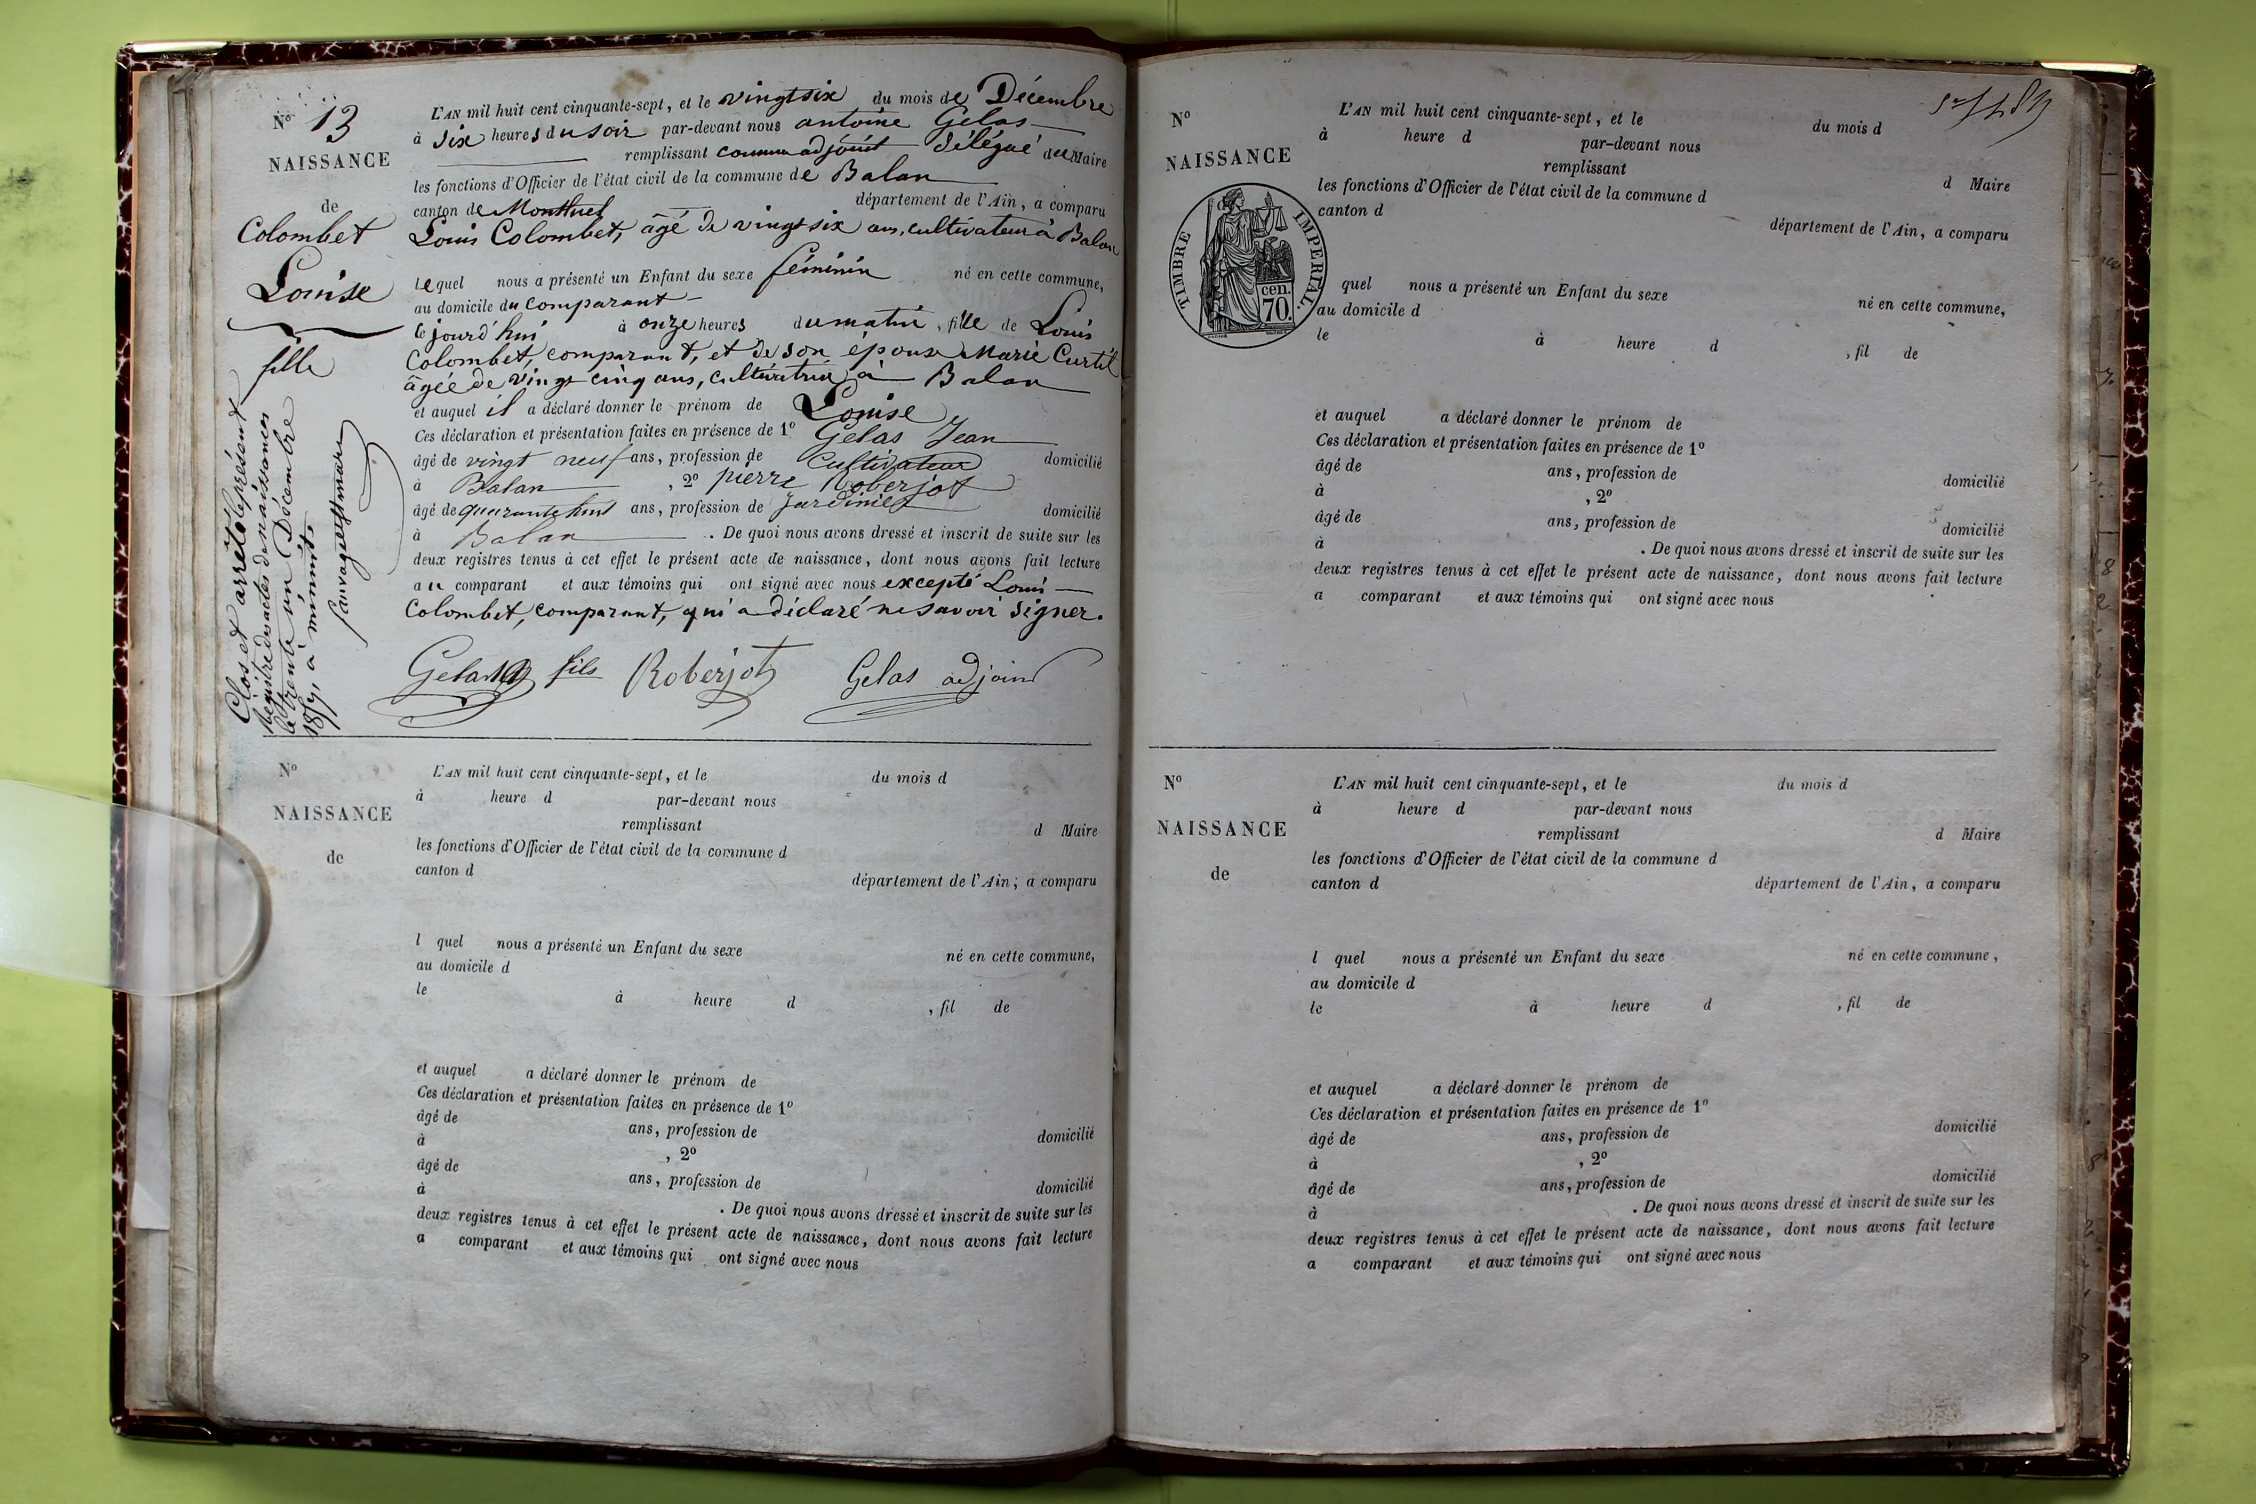 N° 13
NAISSANCE
de
Colombet
Louise
fille
Clos et arrêté le présent
registre des actes de naissances
le trente un Décembre
1857, à minuit.
L'AN mil huit cent cinquante-sept, et le vingt six du mois de Décembre
à six heures du soir par-devant nous antoine Gelas
remplissant comme adjoint délégué du Maire
les fonctions d'Officier de l'état civil de la commune de Balan
canton de Montluel département de l'Ain, a comparu
Louis Colombet, âgé de vingt six ans, cultivateur à Balan
lequel nous a présenté un Enfant du sexe féminin né en cette commune,
au domicile du comparant
le jourd'hui à onze heures du matin, fille de Louis
Colombet, comparant, et de son épouse Marie Curtil
âgée de vingt cinq ans, cultivatrice à Balan
et auquel il a déclaré donner le prénom de Louise
Ces déclaration et présentation faites en présence de 1° Gelas Jean
âgé de vingt neuf ans, profession de Cultivateur domicilié
à Balan, 2° pierre Roberjot
âgé de quarante huit ans, profession de Jardinier domicilié
à Balan. De quoi nous avons dressé et inscrit de suite sur les
deux registres tenus à cet effet le présent acte de naissance, dont nous avons fait lecture
au comparant et aux témoins qui ont signé avec nous excepté Louis
Colombet, comparant, qui a déclaré ne savoir signer.
Gelas fils Roberjot Gelas adjoint
N°
NAISSANCE
de
L'AN mil huit cent cinquante-sept, et le du mois d
à heure d par-devant nous
remplissant d Maire
les fonctions d'Officier de l'état civil de la commune d
canton d département de l'Ain, a comparu
l quel nous a présenté un Enfant du sexe né en cette commune,
au domicile d
le à heure d , fil de
et auquel a déclaré donner le prénom de
Ces déclaration et présentation faites en présence de 1°
âgé de ans, profession de domicilié
à , 2°
âgé de ans, profession de domicilié
à . De quoi nous avons dressé et inscrit de suite sur les
deux registres tenus à cet effet le présent acte de naissance, dont nous avons fait lecture
a comparant et aux témoins qui ont signé avec nous
N°
NAISSANCE
TIMBRE IMPERIAL
cen.
70.
L'AN mil huit cent cinquante-sept, et le du mois d
à heure d par-devant nous
remplissant d Maire
les fonctions d'Officier de l'état civil de la commune d
canton d département de l'Ain, a comparu
quel nous a présenté un Enfant du sexe né en cette commune,
au domicile d
le à heure d , fil de
et auquel a déclaré donner le prénom de
Ces déclaration et présentation faites en présence de 1°
âgé de ans, profession de domicilié
à , 2°
âgé de ans, profession de domicilié
à . De quoi nous avons dressé et inscrit de suite sur les
deux registres tenus à cet effet le présent acte de naissance, dont nous avons fait lecture
a comparant et aux témoins qui ont signé avec nous
N°
NAISSANCE
de
L'AN mil huit cent cinquante-sept, et le du mois d
à heure d par-devant nous
remplissant d Maire
les fonctions d'Officier de l'état civil de la commune d
canton d département de l'Ain, a comparu
l quel nous a présenté un Enfant du sexe né en cette commune,
au domicile d
le à heure d , fil de
et auquel a déclaré donner le prénom de
Ces déclaration et présentation faites en présence de 1°
âgé de ans, profession de domicilié
à , 2°
âgé de ans, profession de domicilié
à . De quoi nous avons dressé et inscrit de suite sur les
deux registres tenus à cet effet le présent acte de naissance, dont nous avons fait lecture
a comparant et aux témoins qui ont signé avec nous